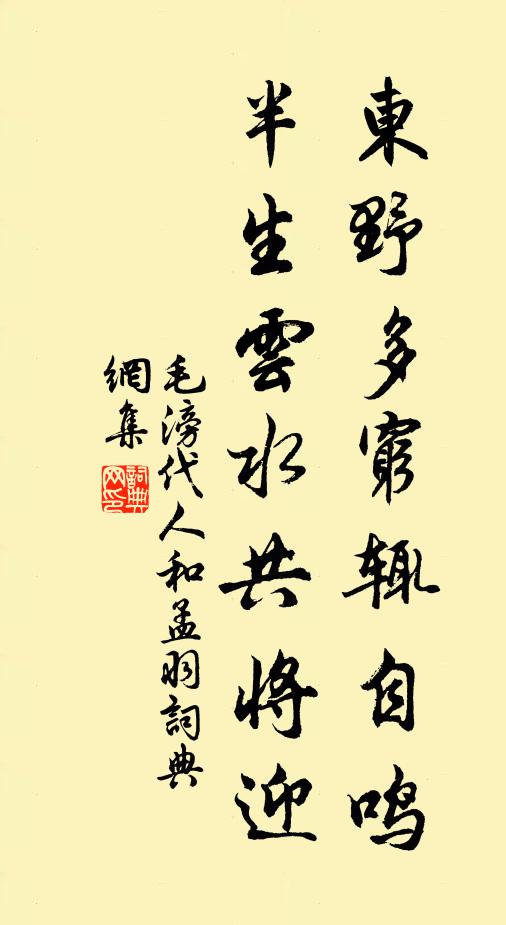 東野多窮輒自鸣
半生雲水共將迎
毛滂代人和孟羽詞典
網集
詞典網印